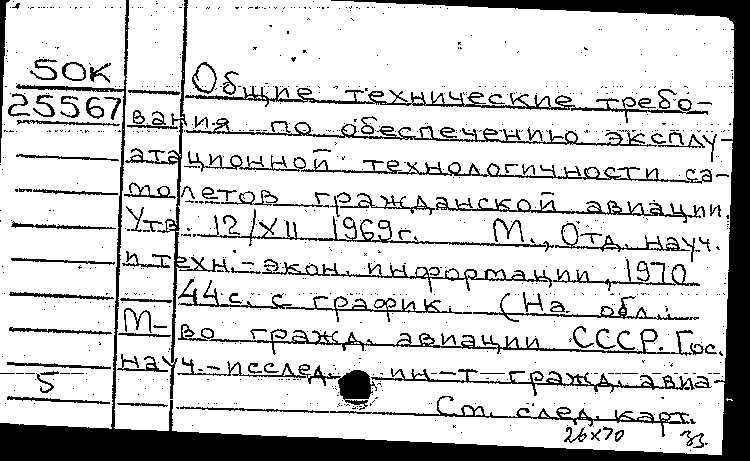 50К
25567
Общие технические требо-
вания по обеспечению эксплу-
атационной технологичности са-
молетов гражданской авиации.
Утв. 12/XII 1969г. М., Отд. науч.
и техн.-экон. информации, 1970
44с. с график. (На обл.:
М-во гражд. авиации СССР. Гос.
науч.-исслед. ин-т гражд. авиа-
5
См. след. карт.
26х70 33.